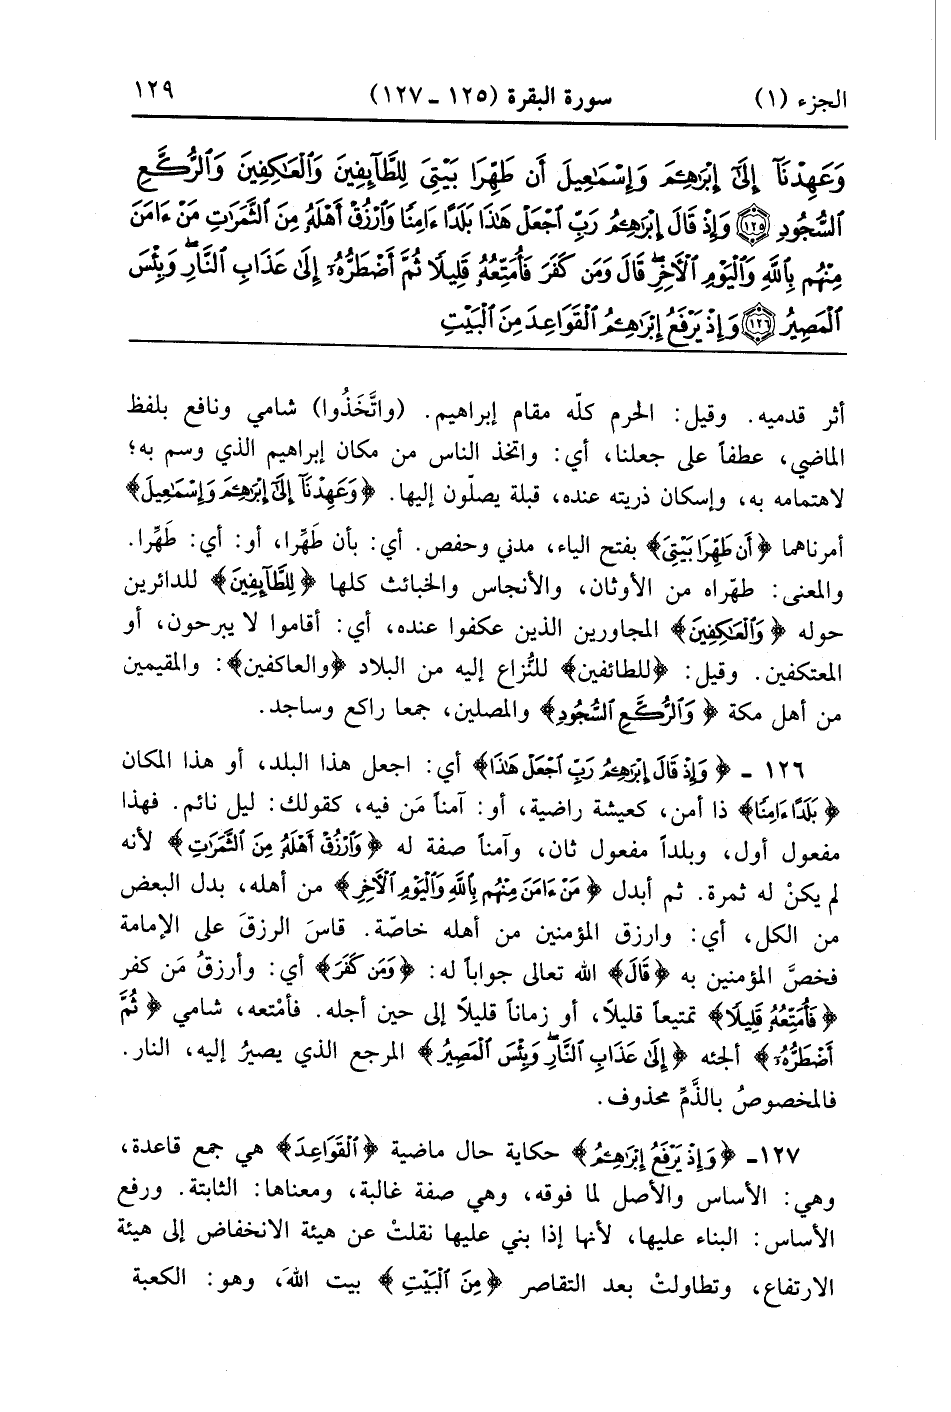 الجزء (١)
سورة البقرة (١٢٥ - ١٢٧)
١٢٩
وَعَهِدْنَآ إِلَىٰٓ إِبْرَٰهِـۧمَ وَإِسْمَٰعِيلَ أَن طَهِّرَا بَيْتِىَ لِلطَّآئِفِينَ وَٱلْعَٰكِفِينَ وَٱلرُّكَّعِ
ٱلسُّجُودِ ۝١٢٥ وَإِذْ قَالَ إِبْرَٰهِـۧمُ رَبِّ ٱجْعَلْ هَٰذَا بَلَدًا ءَامِنًا وَٱرْزُقْ أَهْلَهُۥ مِنَ ٱلثَّمَرَٰتِ مَنْ ءَامَنَ
مِنْهُم بِٱللَّهِ وَٱلْيَوْمِ ٱلْأَخِرِ ۖ قَالَ وَمَن كَفَرَ فَأُمَتِّعُهُۥ قَلِيلًا ثُمَّ أَضْطَرُّهُۥٓ إِلَىٰ عَذَابِ ٱلنَّارِ ۖ وَبِئْسَ
ٱلْمَصِيرُ ۝١٢٦ وَإِذْ يَرْفَعُ إِبْرَٰهِـۧمُ ٱلْقَوَاعِدَ مِنَ ٱلْبَيْتِ
أثر قدميه. وقيل: الحرم كلّه مقام إبراهيم. (واتَّخَذُوا) شامي ونافع بلفظ
الماضي، عطفاً على جعلنا، أي: واتخذ الناس من مكان إبراهيم الذي وسم به؛
لاهتمامه به، وإسكان ذريته عنده، قبلة يصلّون إليها. ﴿وَعَهِدْنَآ إِلَىٰٓ إِبْرَٰهِـۧمَ وَإِسْمَٰعِيلَ﴾
أمرناهما ﴿أَن طَهِّرَا بَيْتِىَ﴾ بفتح الياء، مدني وحفص. أي: بأن طَهِّرا، أو: أي: طَهِّرا.
والمعنى: طهّراه من الأوثان، والأنجاس والخبائث كلها ﴿لِلطَّآئِفِينَ﴾ للدائرين
حوله ﴿وَٱلْعَٰكِفِينَ﴾ المجاورين الذين عكفوا عنده، أي: أقاموا لا يبرحون، أو
المعتكفين. وقيل: ﴿للطائفين﴾ للنُّزاع إليه من البلاد ﴿والعاكفين﴾: والمقيمين
من أهل مكة ﴿وَٱلرُّكَّعِ ٱلسُّجُودِ﴾ والمصلين، جمعا راكع وساجد.
١٢٦ - ﴿وَإِذْ قَالَ إِبْرَٰهِـۧمُ رَبِّ ٱجْعَلْ هَٰذَا﴾ أي: اجعل هذا البلد، أو هذا المكان
﴿بَلَدًا ءَامِنًا﴾ ذا أمن، كعيشة راضية، أو: آمناً مَن فيه، كقولك: ليل نائم. فهذا
مفعول أول، وبلداً مفعول ثان، وآمناً صفة له ﴿وَٱرْزُقْ أَهْلَهُۥ مِنَ ٱلثَّمَرَٰتِ﴾ لأنه
لم يكنْ له ثمرة. ثم أبدل ﴿مَنْ ءَامَنَ مِنْهُم بِٱللَّهِ وَٱلْيَوْمِ ٱلْأَخِرِ﴾ من أهله، بدل البعض
من الكل، أي: وارزق المؤمنين من أهله خاصّة. قاسَ الرزقَ على الإمامة
فخصَّ المؤمنين به ﴿قَالَ﴾ الله تعالى جواباً له: ﴿وَمَن كَفَرَ﴾ أي: وأرزقُ مَن كفر
﴿فَأُمَتِّعُهُۥ قَلِيلًا﴾ تمتيعاً قليلاً، أو زماناً قليلاً إلى حين أجله. فأمْتعه، شامي ﴿ثُمَّ
أَضْطَرُّهُۥٓ﴾ ألجئه ﴿إِلَىٰ عَذَابِ ٱلنَّارِ ۖ وَبِئْسَ ٱلْمَصِيرُ﴾ المرجع الذي يصيرُ إليه، النار.
فالمخصوصُ بالذَّمِّ محذوف.
١٢٧- ﴿وَإِذْ يَرْفَعُ إِبْرَٰهِـۧمُ﴾ حكاية حال ماضية ﴿ٱلْقَوَاعِدَ﴾ هي جمع قاعدة،
وهي: الأساس والأصل لما فوقه، وهي صفة غالبة، ومعناها: الثابتة. ورفع
الأساس: البناء عليها، لأنها إذا بني عليها نقلتْ عن هيئة الانخفاض إلى هيئة
الارتفاع، وتطاولتْ بعد التقاصر ﴿مِنَ ٱلْبَيْتِ﴾ بيت اللهَ، وهو: الكعبة